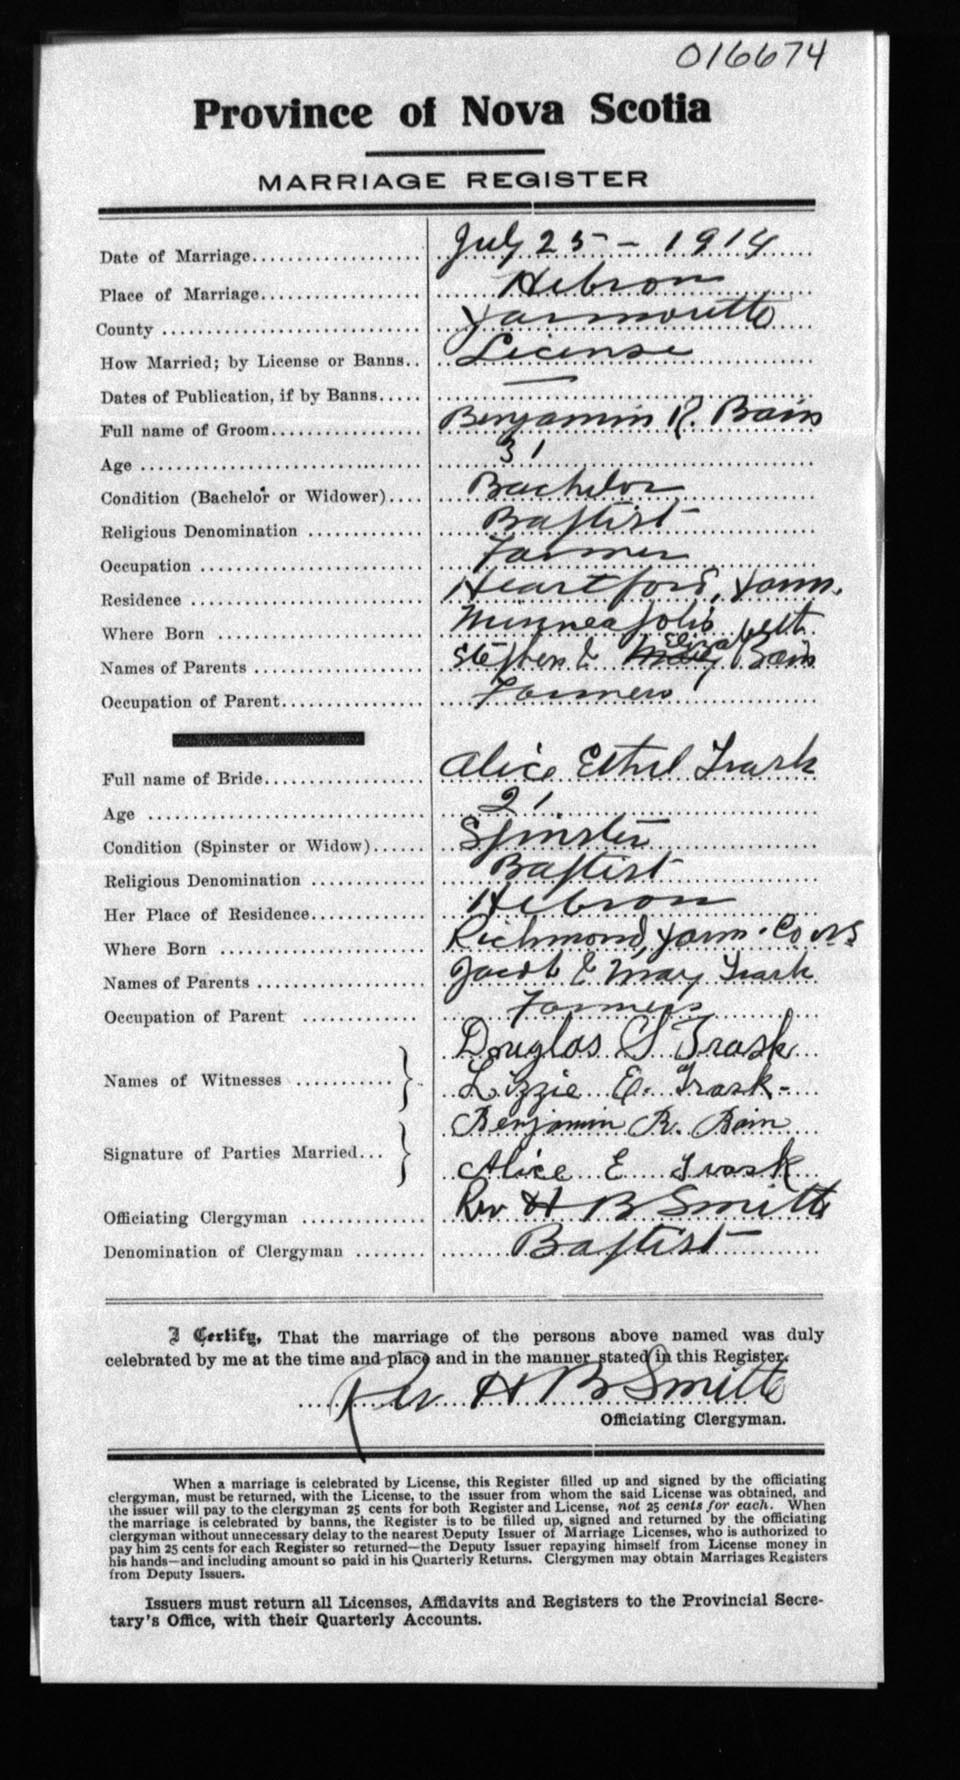 016674
Province of Nova Scotia
MARRIAGE REGISTER
Date of Marriage.................... July 25 - 1914
Place of Marriage................... Hebron
County ............................. Yarmouth
How Married; by License or Banns.. License
Dates of Publication, if by Banns..... —
Full name of Groom.................. Benjamin R. Bain
Age ................................ 31
Condition (Bachelor or Widower).... Bachelor
Religious Denomination ............. Baptist
Occupation ......................... Farmer
Residence .......................... Heartford, Yarm.
Where Born ......................... Minneapolis
Names of Parents ................... Stephen & Elizabeth Bain
Occupation of Parent................ Farmers
Full name of Bride.................. Alice Ethel Trask
Age ................................ 21
Condition (Spinster or Widow)...... Spinster
Religious Denomination ............. Baptist
Her Place of Residence.............. Hebron
Where Born ......................... Richmond, Yarm. Co NS
Names of Parents ................... Jacob & May Trask
Occupation of Parent ............... Farmers
Names of Witnesses ........... } Douglas S Trask
Lizzie E. Trask-
Signature of Parties Married... } Benjamin R. Bain
Alice E Trask
Officiating Clergyman .............. Rev H B Smith
Denomination of Clergyman ........ Baptist
I Certify, That the marriage of the persons above named was duly
celebrated by me at the time and place and in the manner stated in this Register.
Rev H B Smith
Officiating Clergyman.
When a marriage is celebrated by License, this Register filled up and signed by the officiating
clergyman, must be returned, with the License, to the issuer from whom the said License was obtained, and
the issuer will pay to the clergyman 25 cents for both Register and License, not 25 cents for each. When
the marriage is celebrated by banns, the Register is to be filled up, signed and returned by the officiating
clergyman without unnecessary delay to the nearest Deputy Issuer of Marriage Licenses, who is authorized to
pay him 25 cents for each Register so returned—the Deputy Issuer repaying himself from License money in
his hands—and including amount so paid in his Quarterly Returns. Clergymen may obtain Marriages Registers
from Deputy Issuers.
Issuers must return all Licenses, Affidavits and Registers to the Provincial Secre-
tary's Office, with their Quarterly Accounts.